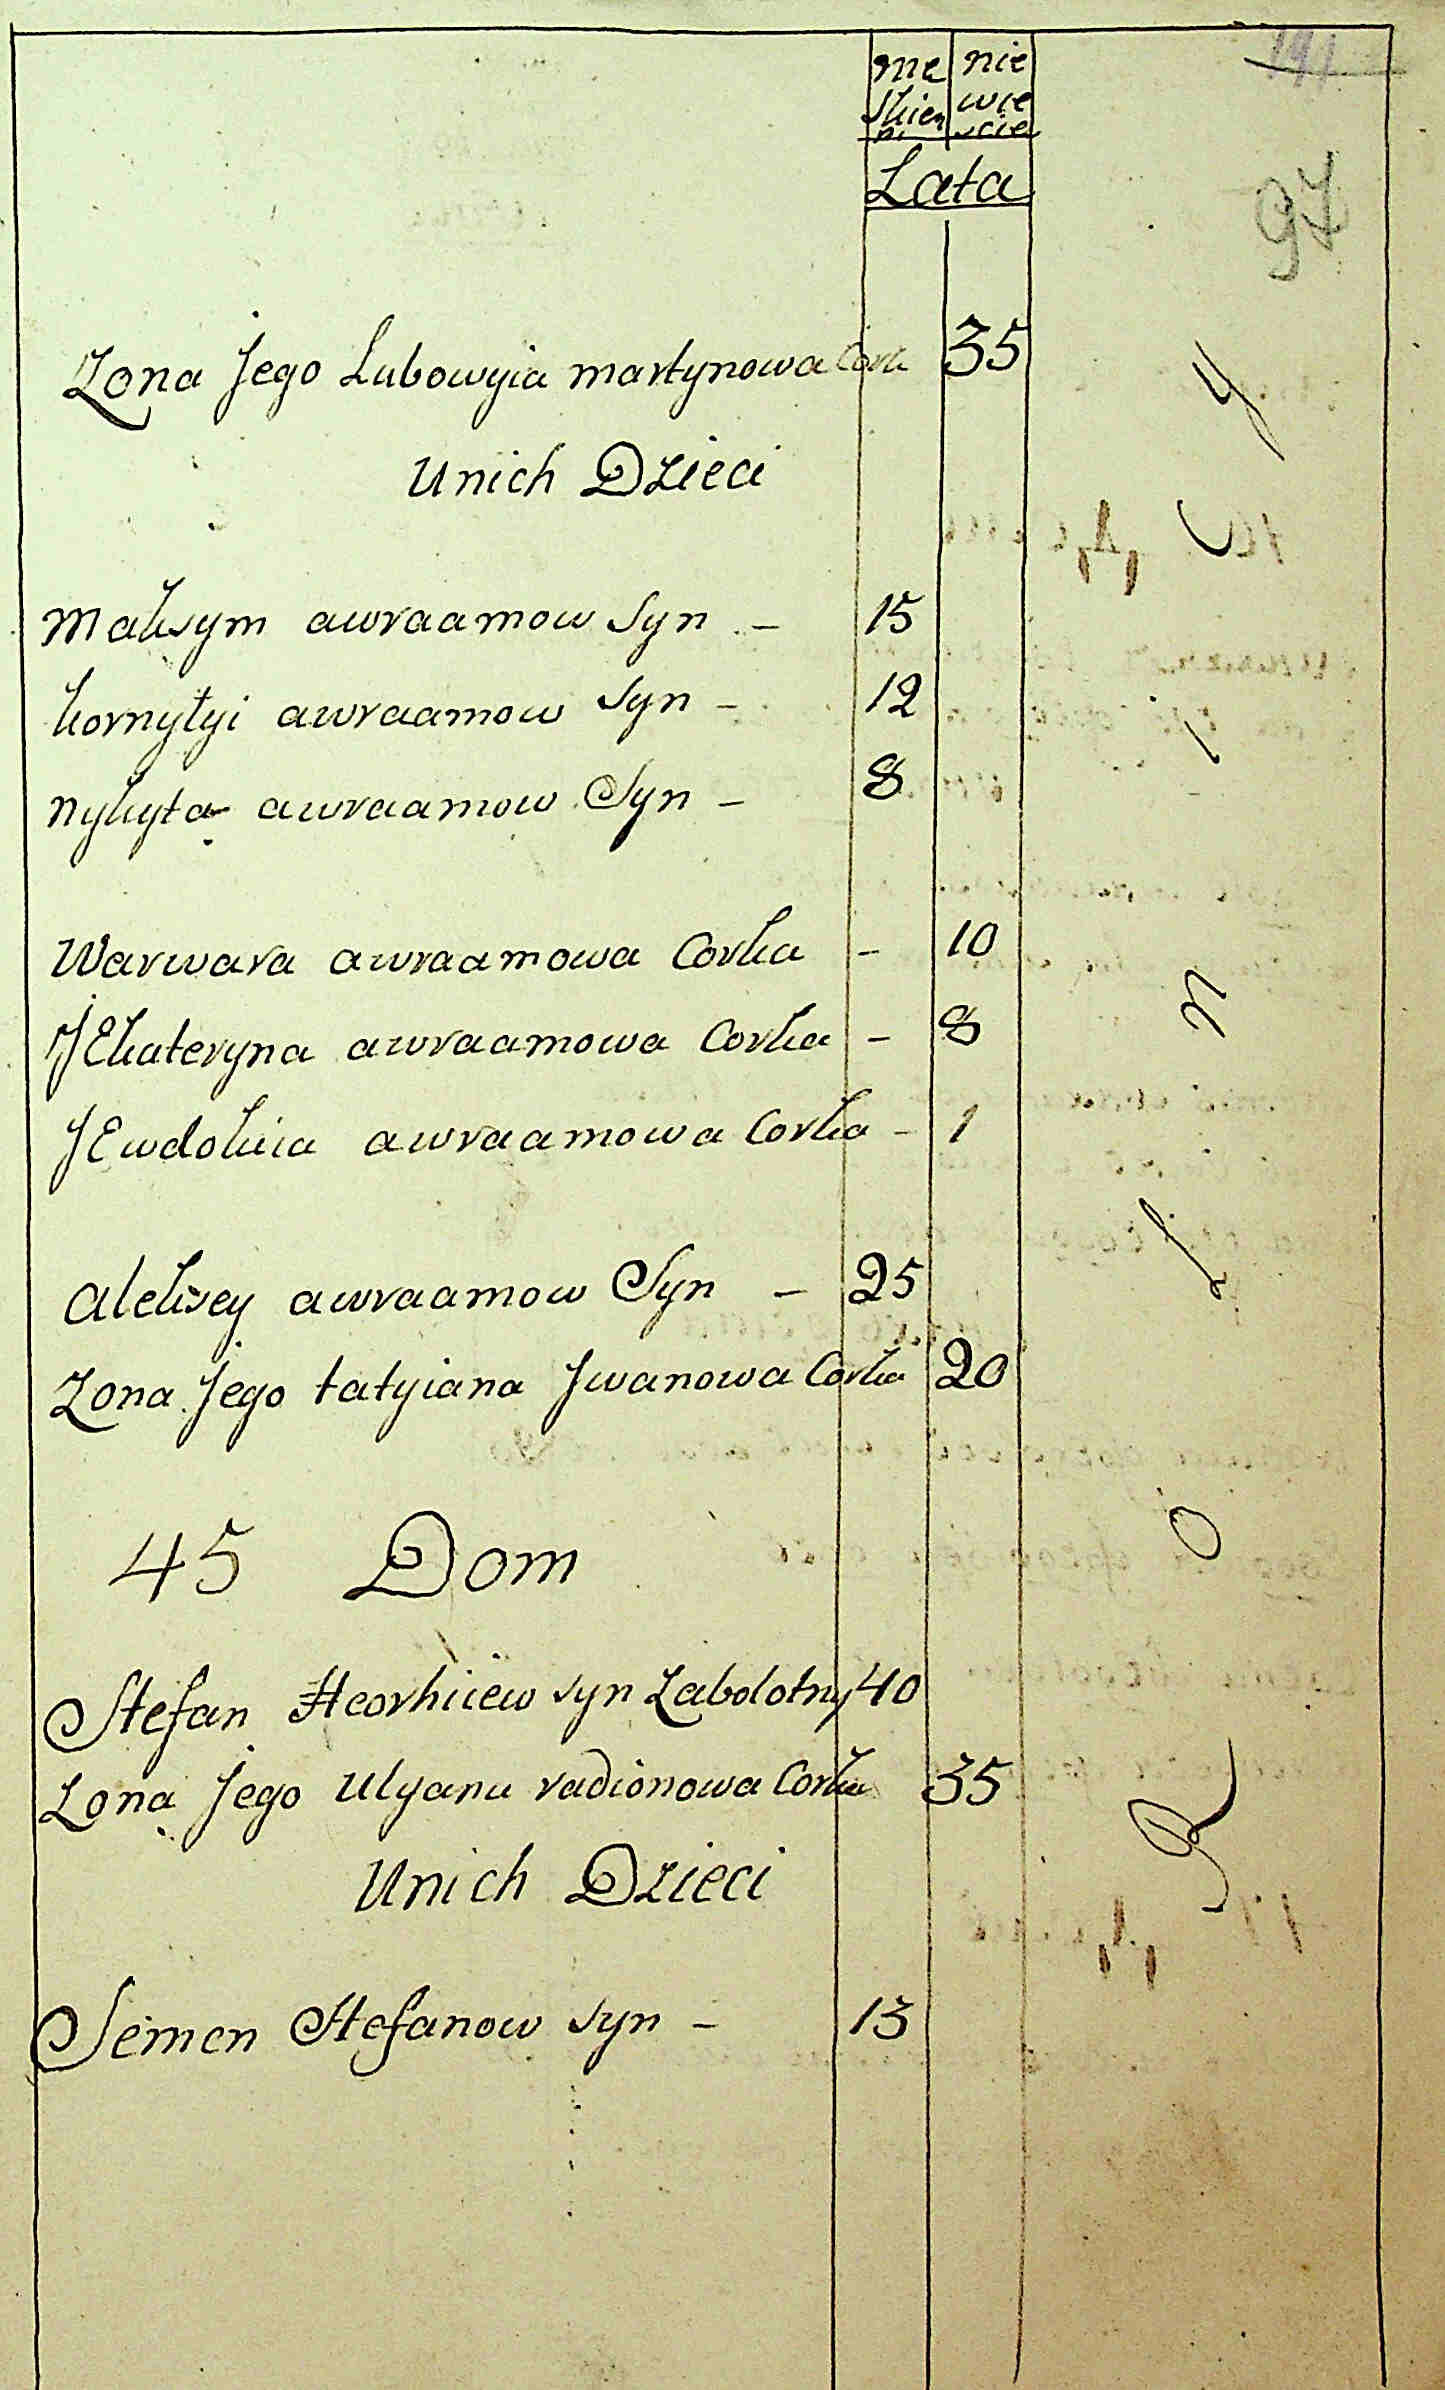 me nie
skien wie
ni scie
Lata
97
Zona Jego Lubowyia martynowa Cork 35
Unich Dzieci
Maksym awraamow Syn - 15
kornyłyi awraamow Syn - 12
nykyta awraamow Syn - 8
Warwara awraamowa Corka - 10
JEkateryna awraamowa Corka - 8
JEwdokia awraamowa Corka - 1
Aleksey awraamow Syn - 25
Zona Jego tatyiana Jwanowa Corka 20
45 Dom
Stefan Heorhiiew syn Zabolotny 40
Zona Jego Ulyana radionowa Corka 35
Unich Dzieci
Semen Stefanow syn - 13